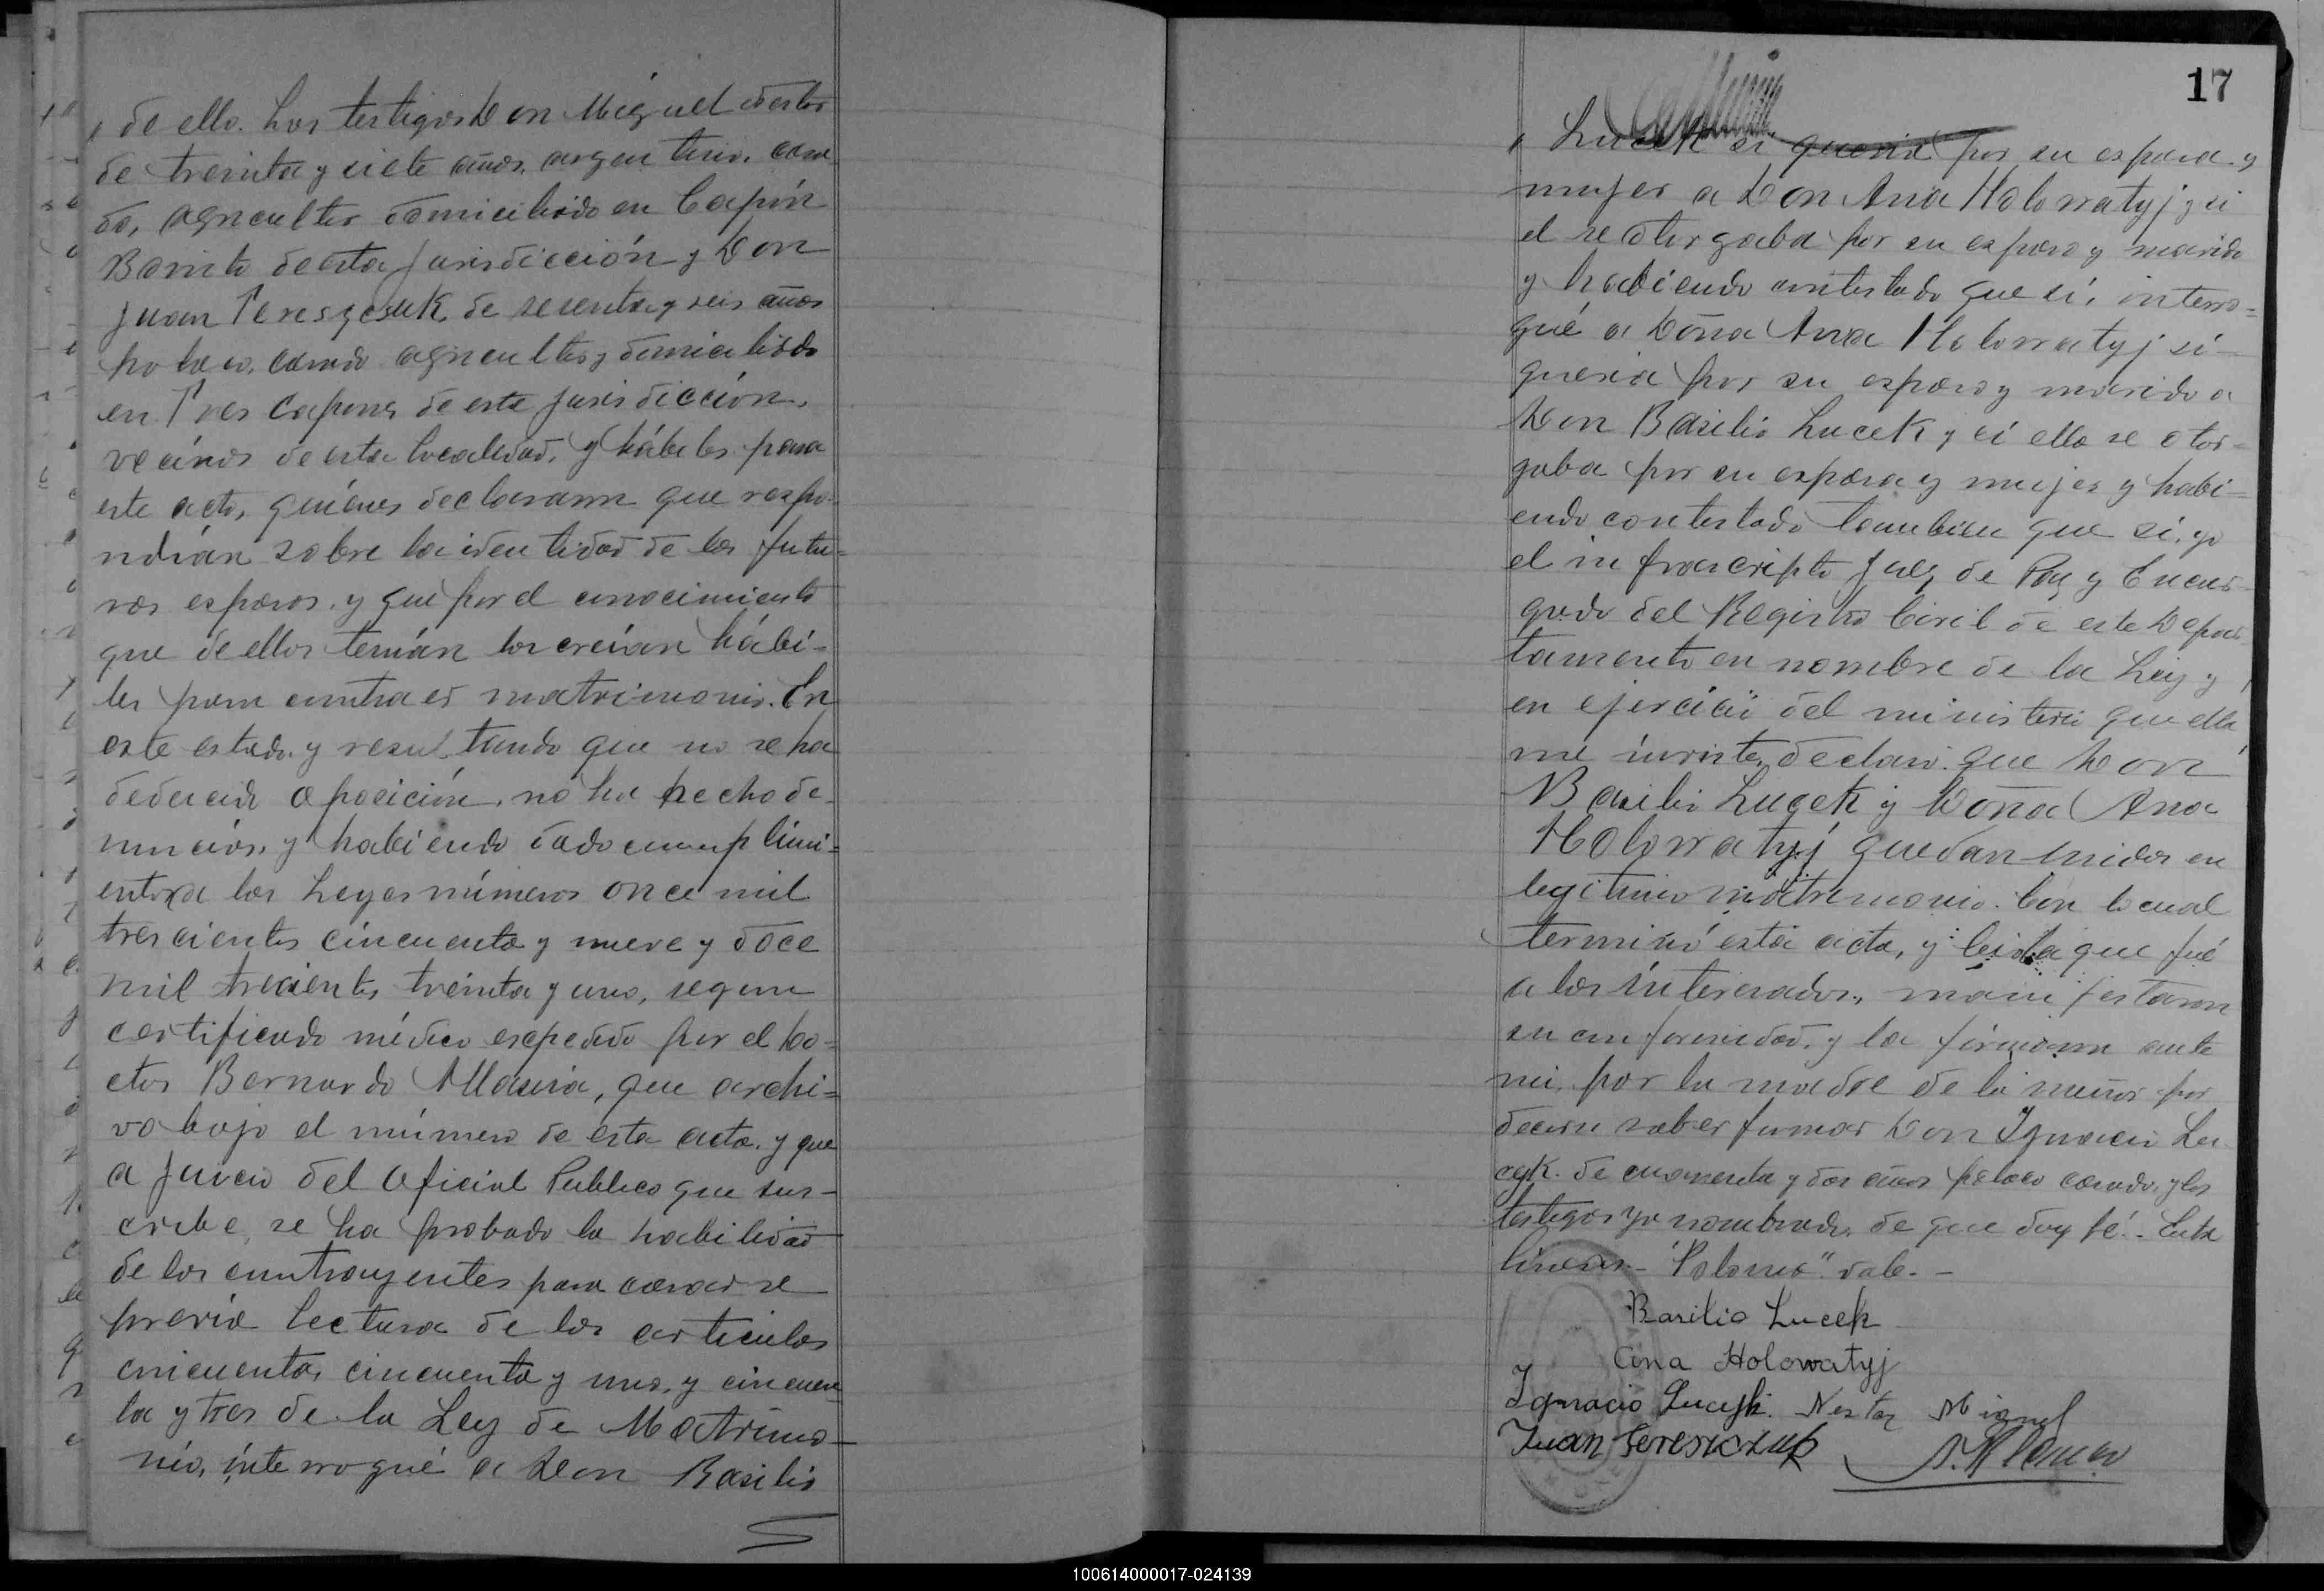 de ello. Los testigos Don Miguel Nestor
de treinta y siete años, argentino, casa
do, agricultor domiciliado en Capón
Bonito de esta jurisdicción y Don
Juan Teresczcuk, de sesenta y seis años
polaco, casado agricultor y domiciliado
en Tres Capones de esta jurisdicción,
vecinos de esta localidad, y hábiles para
este acto, quiénes declararon que respo-
ndían sobre la identidad de los futu=
ros esposos, y que por el conocimiento
que de ellos tenían los creían hábi=
les para contraer matrimonio. En
este estado y resultando que no se ha
deducido oposición, no ha hecho de-
nuncias, y habiendo dado cumplimi=
ento a las Leyes números once mil
trescientos cincuenta y nueve y doce
mil trecientos treinta y uno, segun
certificado médico expedido por el Do=
ctor Bernardo Allasia, que archi=
vo bajo el número de esta acta, y que
a juicio del Oficial Publico que sus-
cribe, se ha probado la habilidad
de los contrayentes para casarse
previa lectura de los articulos
cincuenta, cincuenta y uno, y cincuen
ta y tres de la Ley de Matrimo-
nio, interrogué a Don Basilio
17
Lucek si queria por su esposa y
mujer a Don Ana Holowatyj y si
el se otorgaba por su esposo y marido
y habiendo contestado que sí, interro=
gué a Doña Ana Holowatyj si
queria por su esposo y marido a
Don Basilio Lucek y si ella se otor=
gaba por su esposa y mujer y habi=
endo contestado tambien que sí, yo
el infrascripto Juez de Paz y Encar-
gado del Registro Civil de este Depar
tamento en nombre de la Ley y
en ejercicio del ministerio que ella
me inviste, declaro que Don
Basilio Lucek y Doña Ana
Holowatyj quedan unidos en
legitimo matrimonio. Con lo cual
terminó esta acta, y leida que fué
a los interesados, manifestaron
su conformidad, y la firmaron ante
mi, por la madre de la menor por
decir saber firmar Don Ignacio Lu
cyk. de cuarenta y dos años polaco casado, y los
testigos ya nombrados, de que doy fé.- Entre
lineas- "Polonia" vale.-
Basilio Lucek
Ana Holowatyj
Ignacio Lucyk. Nestor Miguel
Juan Teresiczuk
100614000017-024139